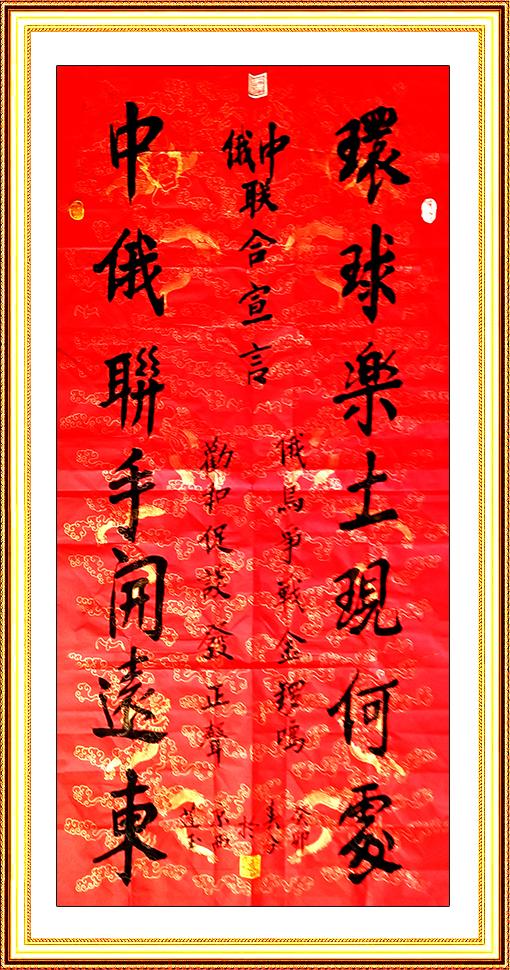 環球楽土現何處
中俄联合宣言
俄烏爭戰金鳴
勸和促談發正聲
中俄聯手開遠東
癸卯
於